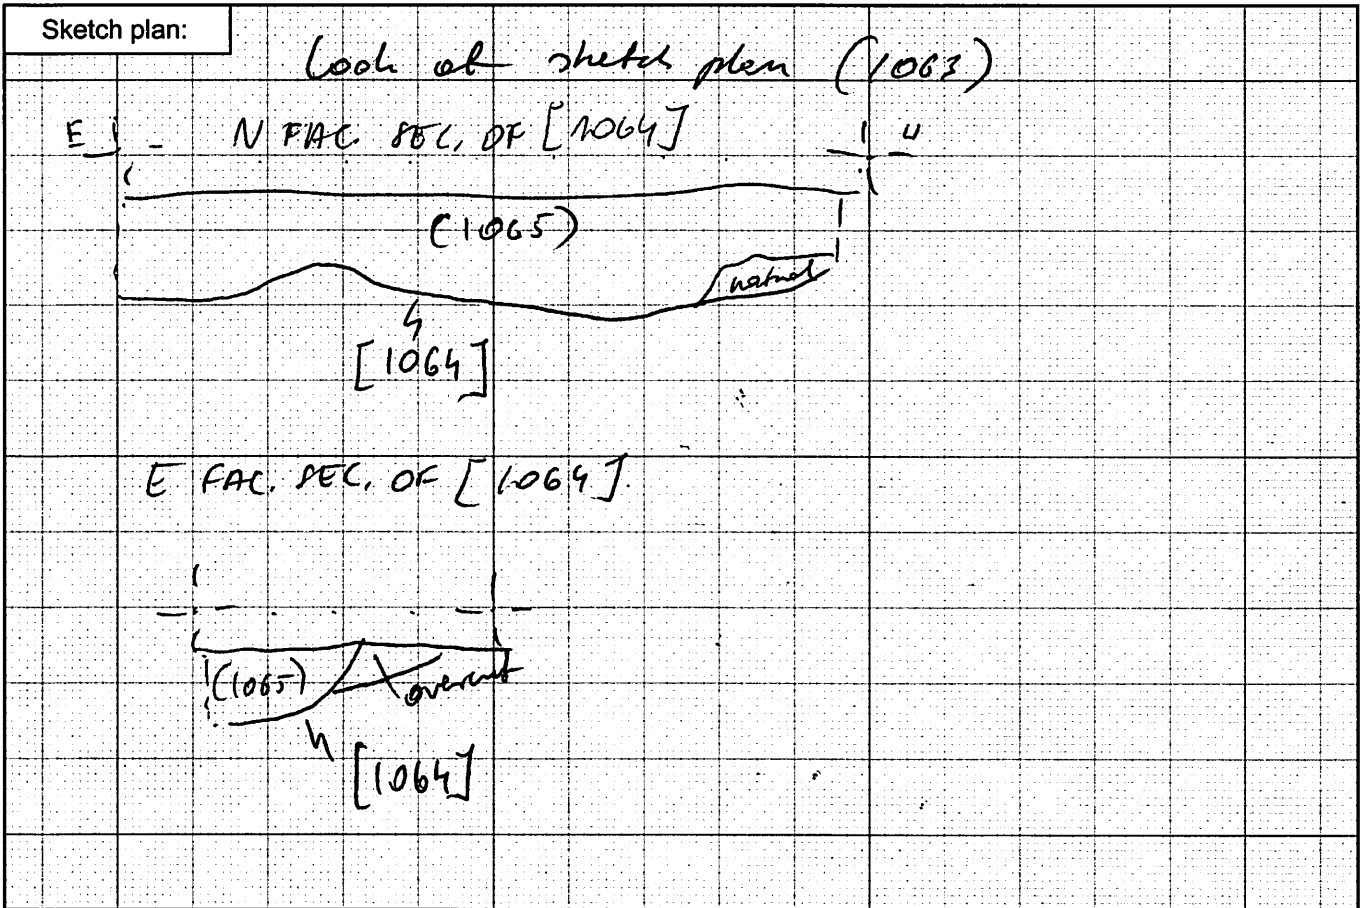 Sketch plan:
Look at sketch plan (1063)
E N FAC. SEC. OF [1064] W
(1065)
natural
[1064]
E FAC. SEC. OF [1064].
(1065) overcut
[1064]